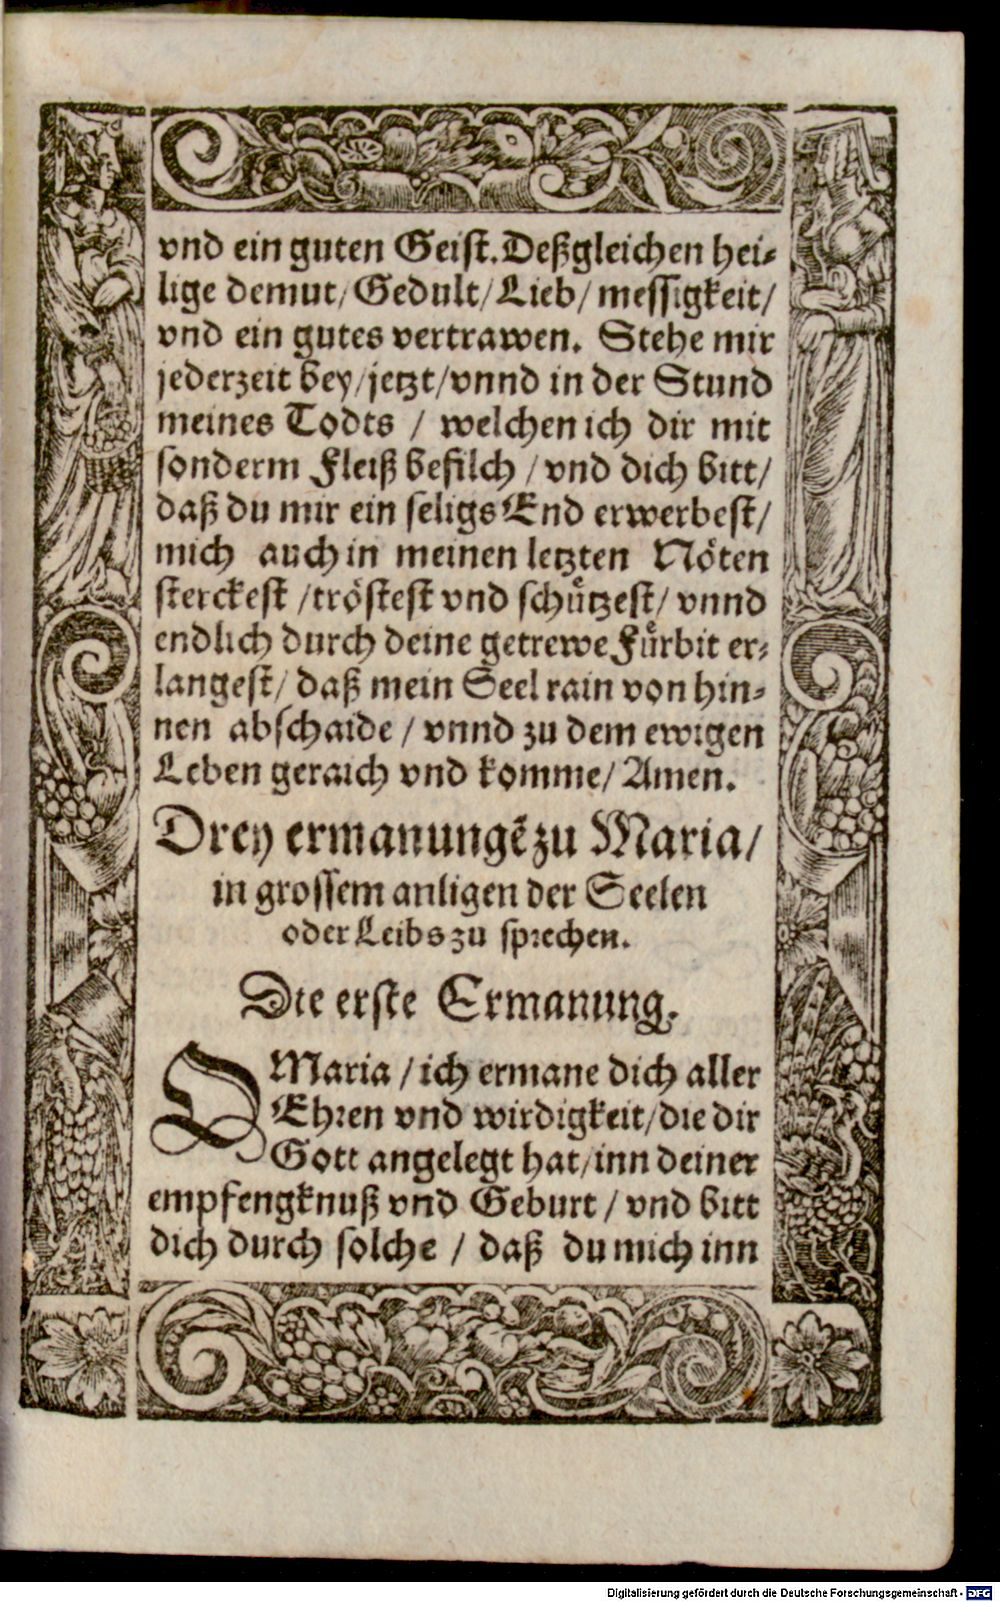 vnd ein guten Geist. Deßgleichen hei⸗
lige demut/ Gedult/ Lieb/ messigkeit/
vnd ein gutes vertrawen. Stehe mir
jederzeit bey/ jetzt/ vnnd in der Stund
meines Todts / welchen ich dir mit
sonderm Fleiß befilch / vnd dich bitt/
daß du mir ein seligs End erwerbest/
mich auch in meinen letzten Nöten
sterckest / tröstest vnd schuͤtzest/ vnnd
endlich durch deine getrewe Fuͤrbit er⸗
langest/ daß mein Seel rain von hin⸗
nen abschaide / vnnd zu dem ewigen
Leben geraich vnd komme/ Amen.
Drey ermanungē zu Maria/
in grossem anligen der Seelen
oder Leibs zu sprechen.
Die erste Ermanung.
O Maria / ich ermane dich aller
Ehren vnd wirdigkeit/ die dir
Gott angelegt hat/ inn deiner
empfengknuß vnd Geburt / vnd bitt
dich durch solche / daß du mich inn
Digitalisierung gefördert durch die Deutsche Forschungsgemeinschaft - DFG